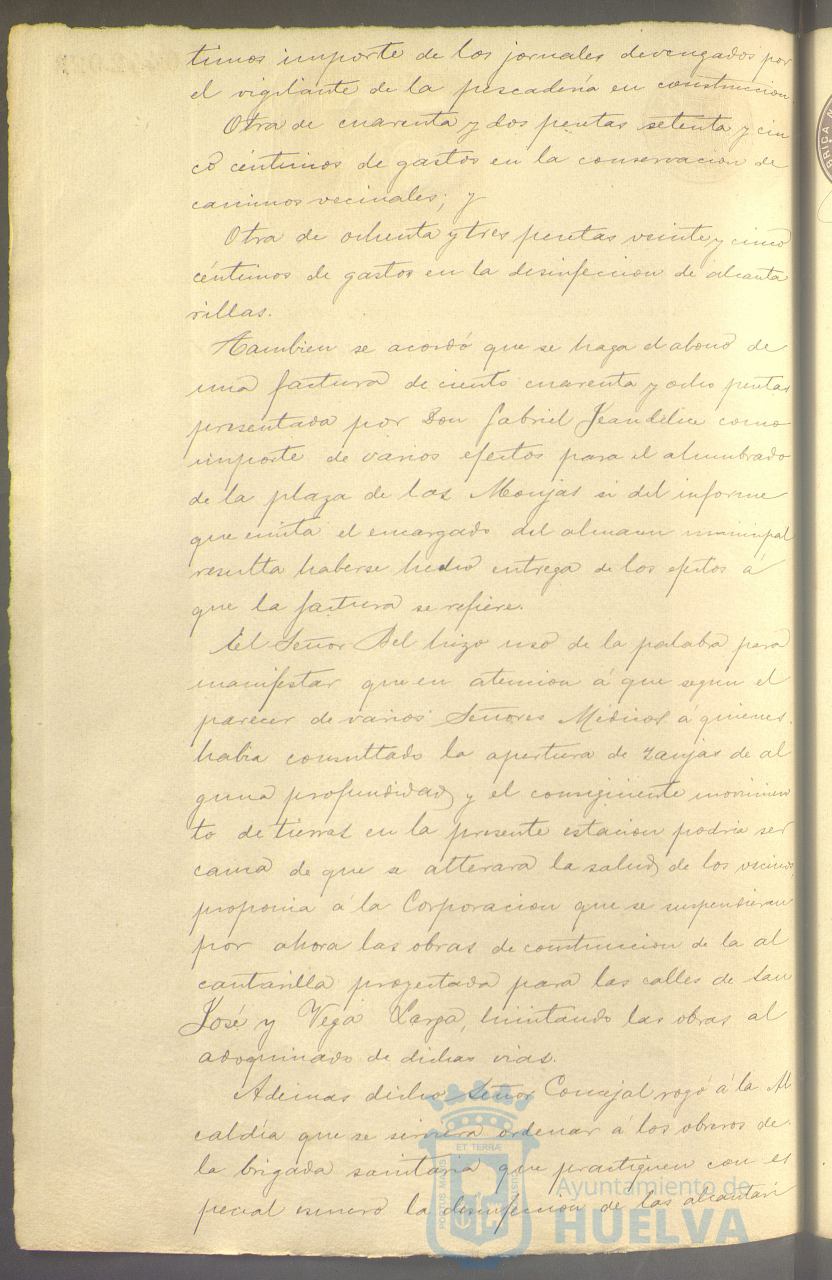 timos importe de los jornales devengados por
el vigilante de la pescadería en construccion.
Otra de cuarenta y dos pesetas setenta y cin
co céntimos de gastos en la conservacion de
caminos vecinales; y
Otra de ochenta y tres pesetas veinte y cinco
céntimos de gastos en la desinfeccion de alcanta
rillas.
Tambien se acordó que se haga el abono de
una factura de ciento cuarenta y ocho pesetas
presentada por Don Gabriel como
importe de varios efectos para el alumbrado
de la plaza de las Monjas si del informe
que emita el encargado del almacen municipal
resulta haberse hecho entrega de los efectos á
que la factura se refiere.
El Señor Bel hizo uso de la palabra para
manifestar que en atencion á que segun el
parecer de varios Señores Médicos á quienes
habia consultado la apertura de zanjas de al
guna profundidad y el consiguiente movimien
to de tierras en la presente estacion podria ser
causa de que se alterara la salud de los vecinos,
proponia á la Corporacion que se suspendieran
por ahora las obras de construccion de la al
cantarilla proyectada para las calles de San
José y Vega Larga, limitando las obras al
adoquinado de dichas vias.
Ademas dicho Señor Concejal rogó á la Al
caldía que se sirviera ordenar á los obreros de
la brigada sanitaria que practiquen con es
pecial esmero la desinfeccion de las alcantari
PORTUS MARIS
ET TERRÆ
CUSTODIA
Ayuntamiento de
HUELVA